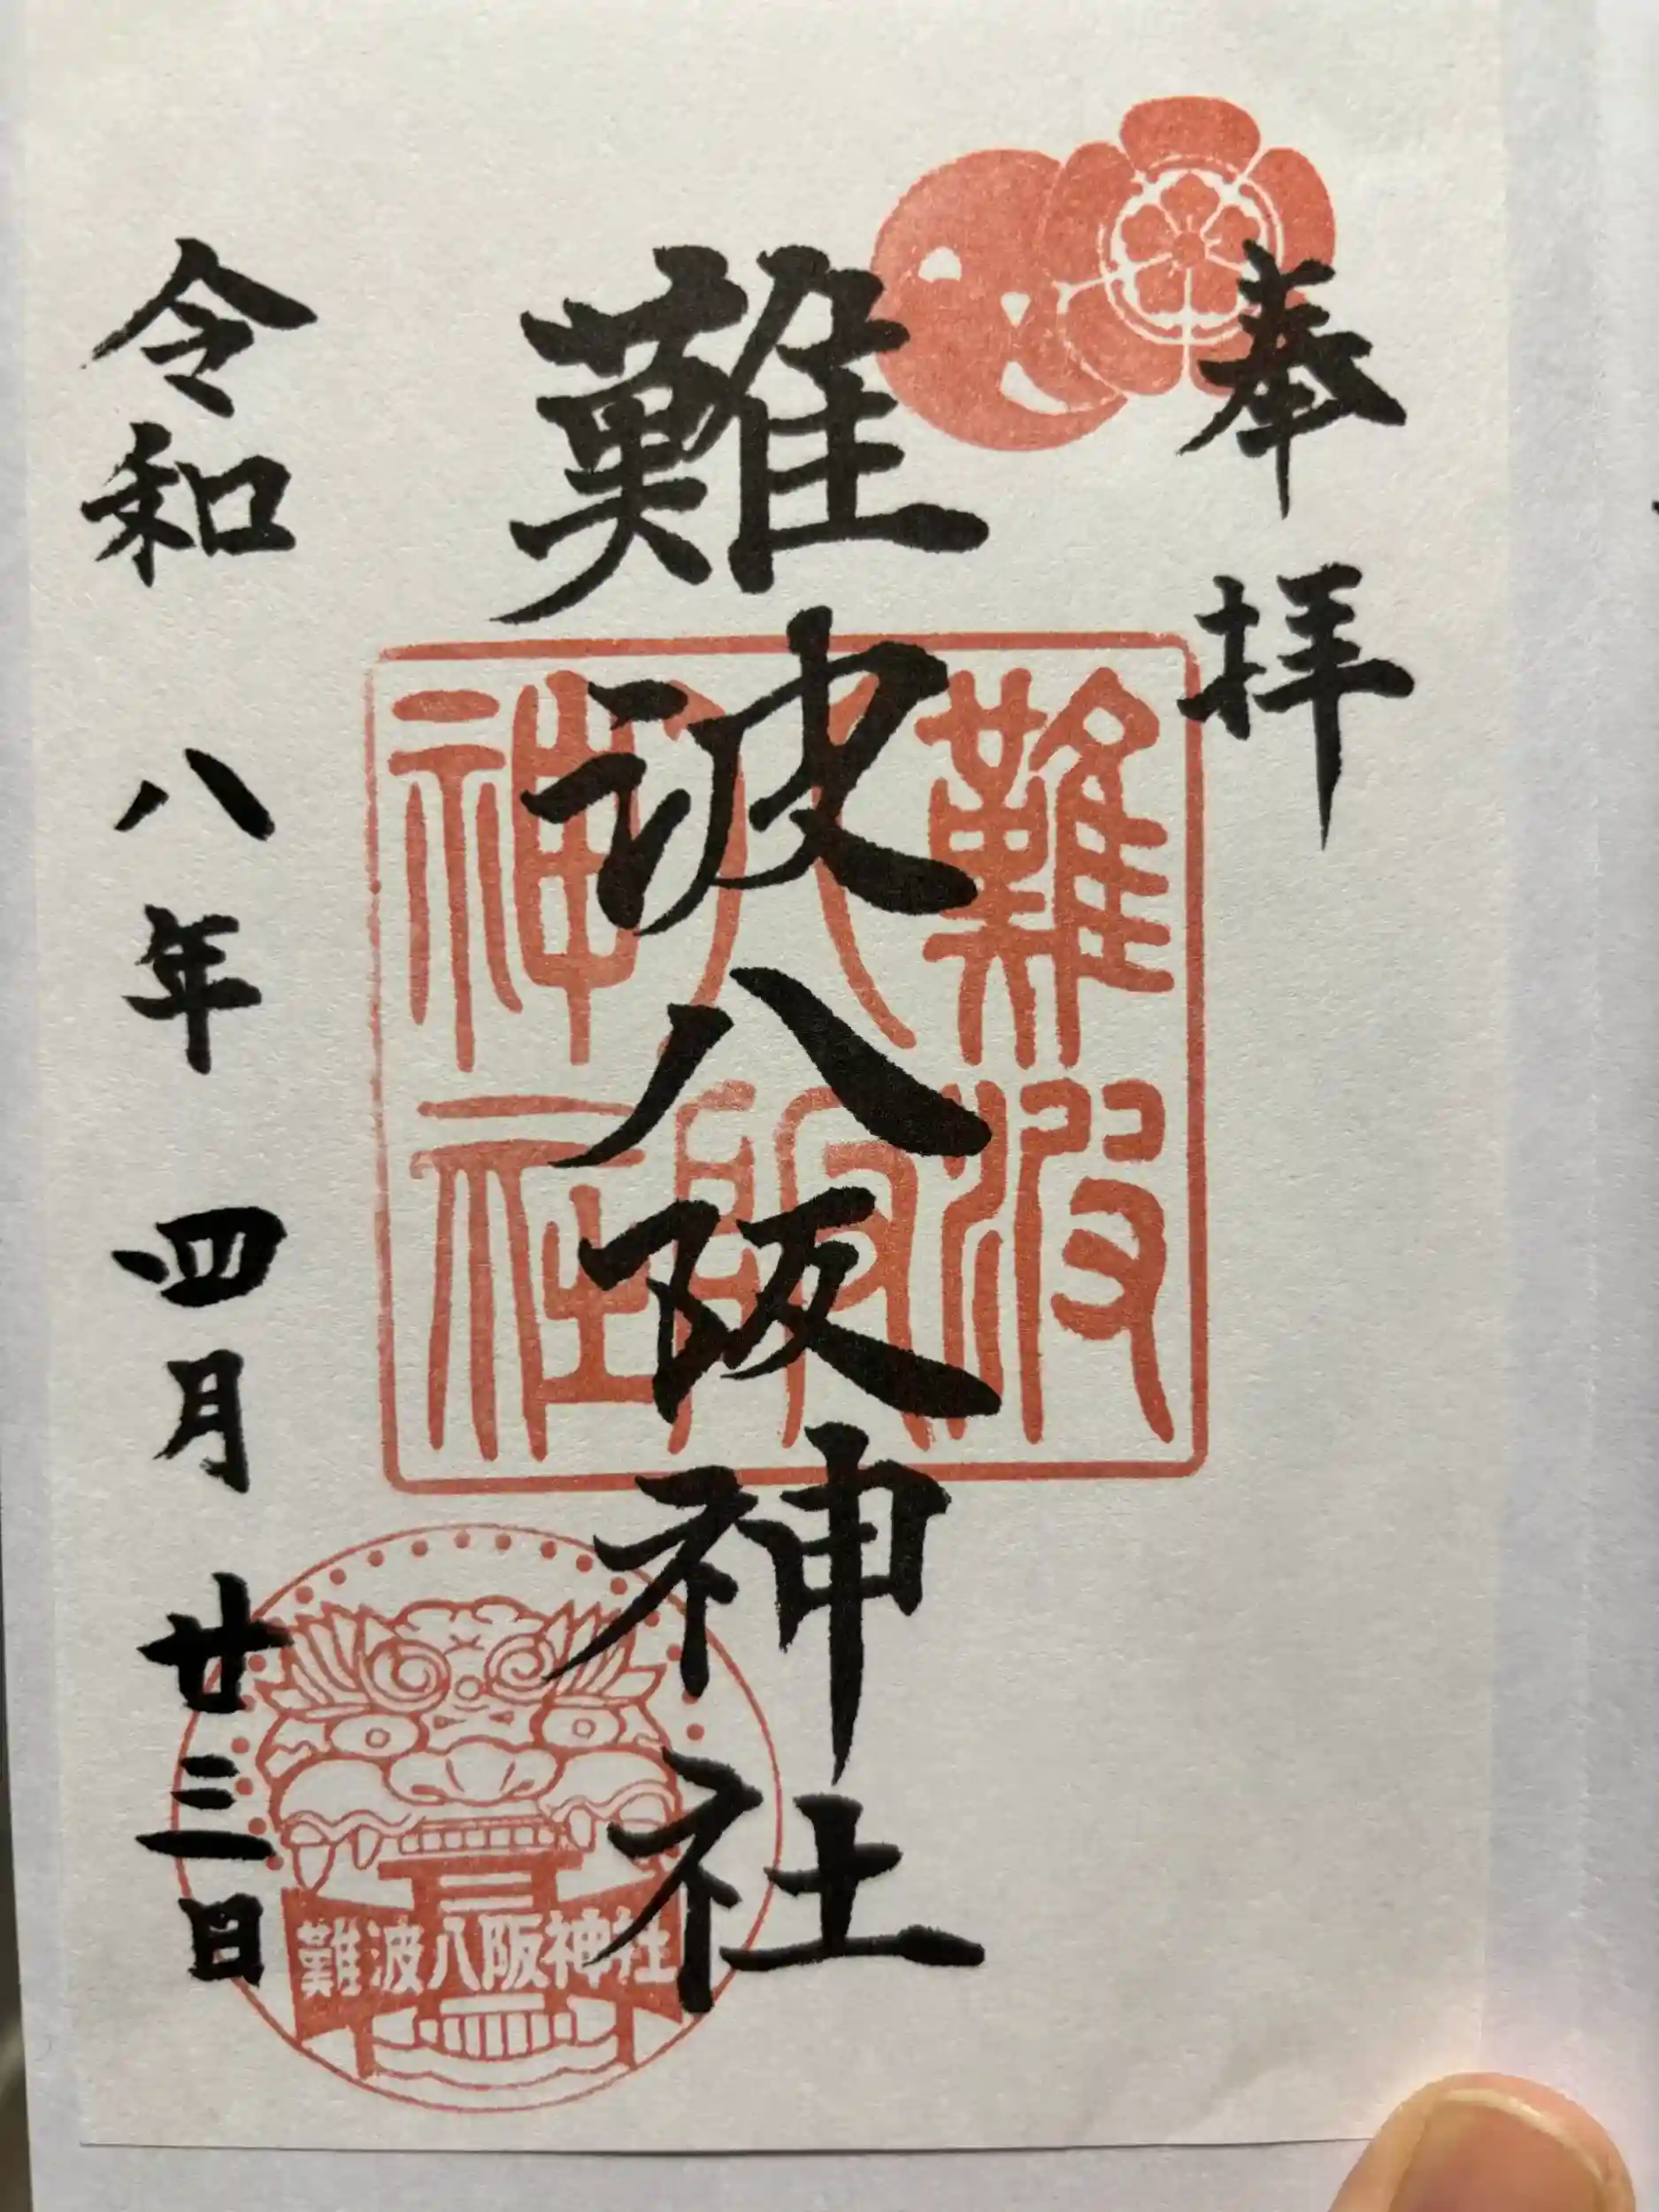 奉拝
難波八阪神社
難波八阪神社
令和八年四月廿三日
難波八阪神社